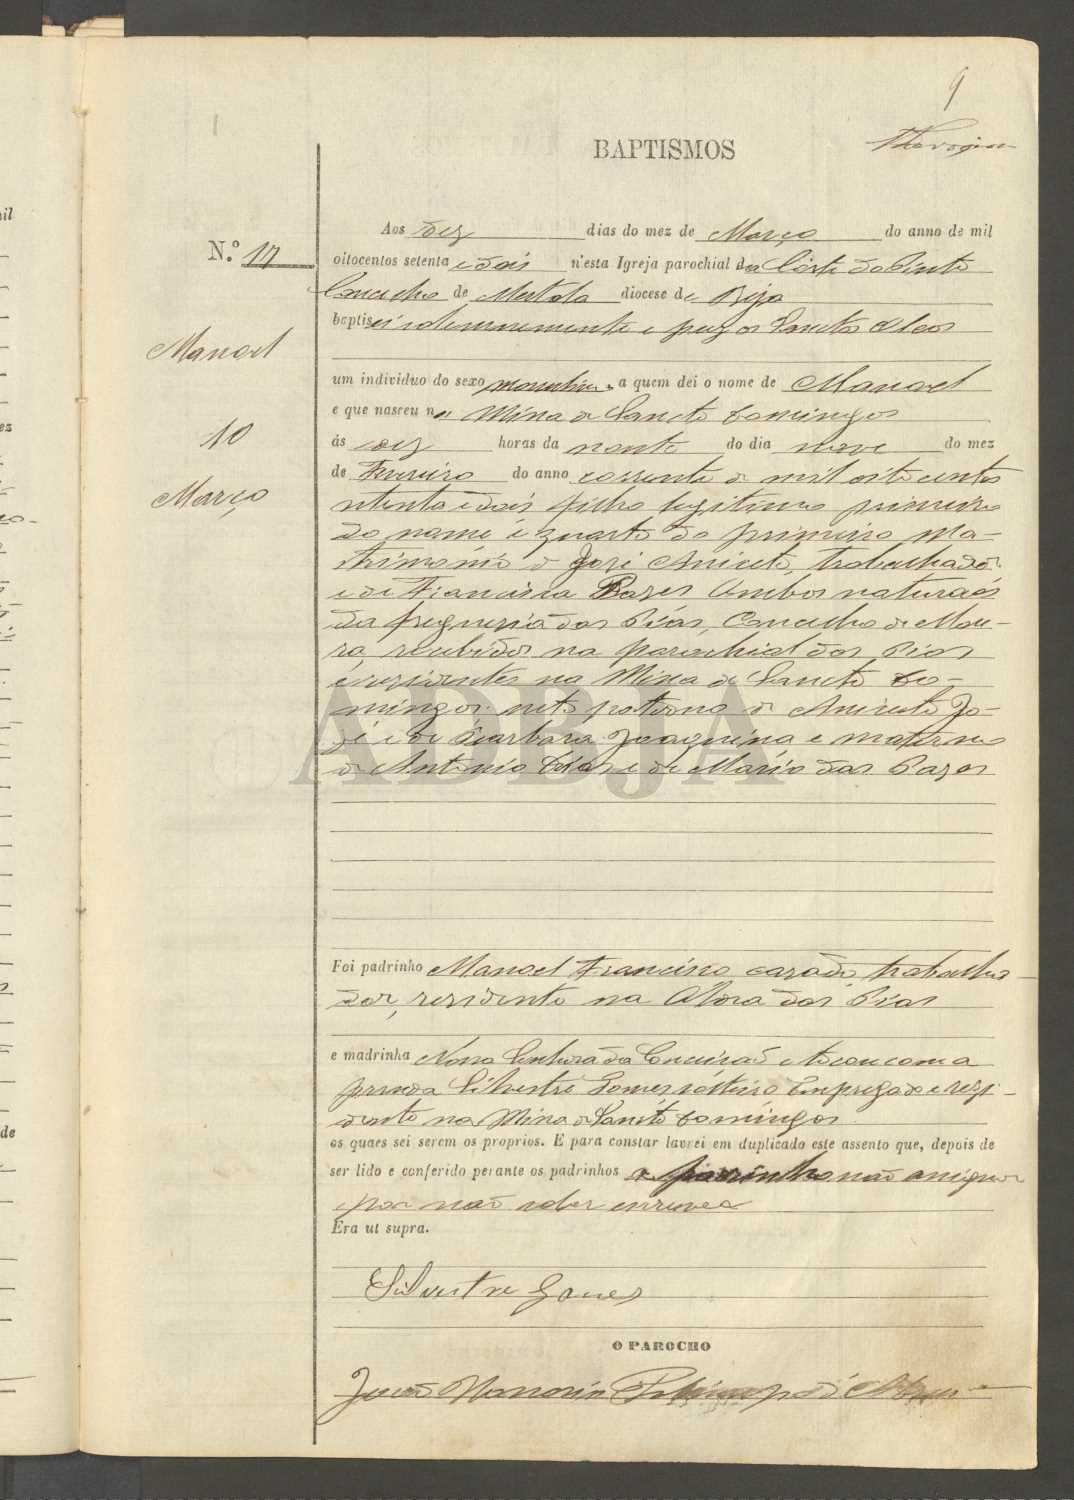 9
BAPTISMOS
N.º 17
Manoel
10
Março
Aos dez dias do mez de Março do anno de mil
oitocentos setenta e dois n'esta Igreja parochial da Côrte do Pinto
Concelho de Mertola diocese de Beja
baptisei solemnemente e puz os Sanctos Oleos
um individuo do sexo masculino a quem dei o nome de Manoel
e que nasceu na Mina de Sancto Domingos
ás dez horas da noute do dia nove do mez
de Fevereiro do anno corrente de mil oito centos
setenta e dois filho legitimo primeiro
do nome é quarto do primeiro Ma-
trimónio de José Aniceto, trabalhador
e de Francisca Pazes Ambos naturaes
da freguesia das Piás, Concelho de Mou-
ra, recebidos na parochial das Pias
e residentes na Mina de Sancto Do-
mingos neto paterno de Aniceto Jo-
sé e de Barbara Joaquina e materno
de Antonio Dias e de Maria das Pazes
Foi padrinho Manoel Francisco casado, trabalha-
dor, residente na Aldea das Pias
e madrinha Nossa Senhora da Conceicaõ e tocou com a
prenda Silvestre Gomes solteiro Empregado e resi-
dente na Mina de Sancto Domingos
os quaes sei serem os proprios. E para constar lavrei em duplicado este assento que, depois de
ser lido e conferido perante os padrinhos o padrinho naõ assignou
por naõ saber escrever
Era ut supra.
Silvestre Gomes
O PAROCHO
ADBJA